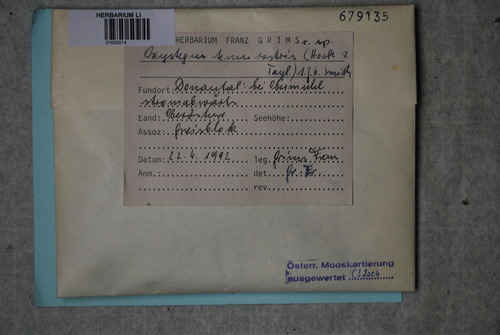 HERBARIUM LI
679135
HERBARIUM FRANZ GRIMS
Oxystegus tenuirostris (Hook. &
Tayl.) A.J.E. Smith
Fundort: Donautal bei Obermühl
stromabwärts
Land: Oberöster. Seehöhe:
Assoz:
Datum: 22.4.1992 leg. Grims Franz
Anm.: det. Gr. Fr.
rev.
Österr. Mooskartierung
ausgewertet